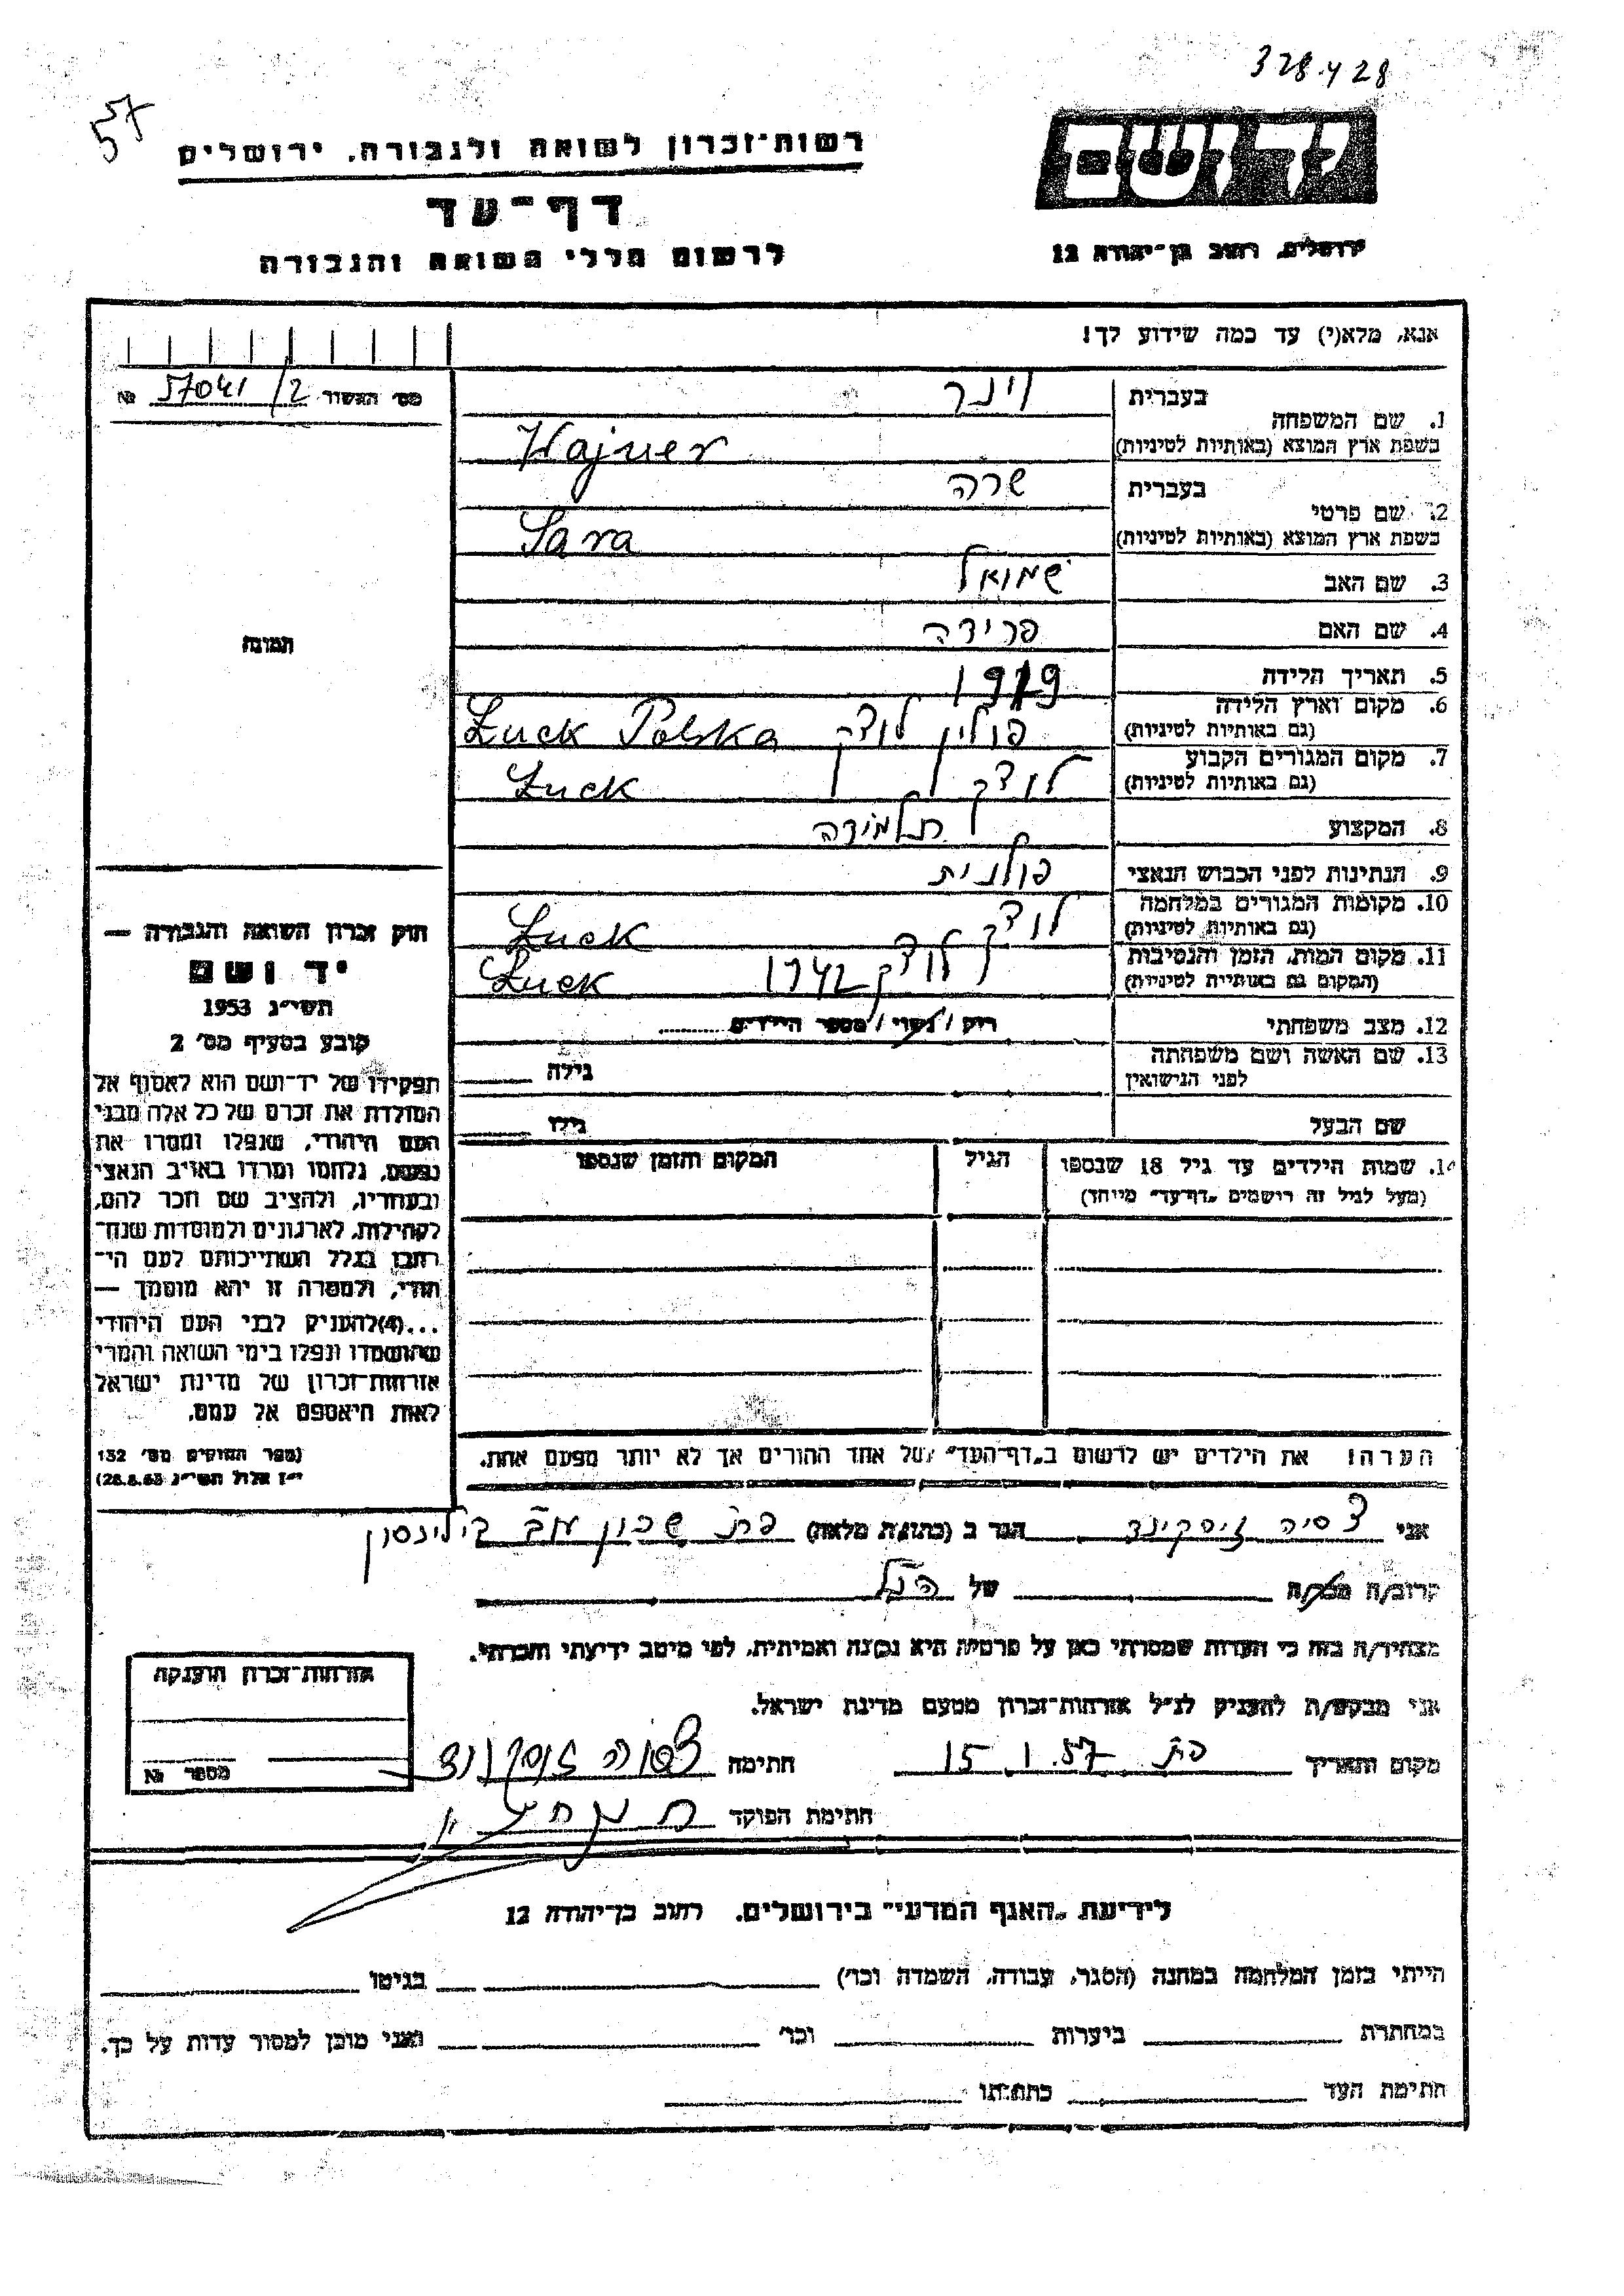 328.428
57
יד ושם
רשות־זכרון לשואה ולגבורה, ירושלים
דף־עד
לרשום חללי השואה והגבורה
ירושלים, רחוב בן־יהודה 12
אנא, מלא(י) עד כמה שידוע לך!
מס' האשור № 57041/2
1. שם המשפחה בעברית וינר
בשפת ארץ המוצא (באותיות לטיניות) Wajner
2. שם פרטי בעברית שרה
בשפת ארץ המוצא (באותיות לטיניות) Sara
3. שם האב שמואל
4. שם האם פרידה
תמונה
5. תאריך הלידה 1919
6. מקום וארץ הלידה (גם באותיות לטיניות) פולין לודק Łuck Polska
7. מקום המגורים הקבוע (גם באותיות לטיניות) לודק Łuck
8. המקצוע תלמידה
9. הנתינות לפני הכבוש הנאצי פולנית
10. מקומות המגורים במלחמה (גם באותיות לטיניות) לודק Łuck
11. מקום המות, הזמן והנסיבות (המקום גם באותיות לטיניות) לודק 1942 Łuck
12. מצב משפחתי רווק / נשוי / מספר הילדים
13. שם האשה ושם משפחתה לפני הנישואין גילה
שם הבעל גילו
14. שמות הילדים עד גיל 18 שנספו הגיל המקום והזמן שנספו
(מעל לגיל זה רושמים „דף־עד" מיוחד)
חוק זכרון השואה והגבורה —
יד ושם
תשי"ג 1953
קובע בסעיף מס' 2
תפקידו של יד־ושם הוא לאסוף אל
המולדת את זכרם של כל אלה מבני
העם היהודי, שנפלו ומסרו את
נפשם, נלחמו ומרדו באויב הנאצי
ובעוזריו, ולהציב שם וזכר להם,
לקהילות, לארגונים ולמוסדות שנח־
רבו בגלל השתייכותם לעם הי־
הודי, ולמטרה זו יהא מוסמך —
...(4)להעניק לבני העם היהודי
שהושמדו ונפלו בימי השואה והמרי
אזרחות־זכרון של מדינת ישראל
לאות היאספם אל עמם.
(ספר החוקים מס' 132
י"ז אלול תשי"ג 28.8.53)
הערה! את הילדים יש לרשום ב„דף־העד" של אחד ההורים אך לא יותר מפעם אחת.
אני זיסקינד הגר ב (כתובת מלאה) פת שכון בילינסון
קרוב/ה מכר/ה של הנ"ל
מצהיר/ה בזה כי העדות שמסרתי כאן על פרטיה היא נכונה ואמיתית, לפי מיטב ידיעתי והכרתי.
אני מבקש/ת להעניק לנ"ל אזרחות־זכרון מטעם מדינת ישראל.
מקום ותאריך פת 15.1.57 חתימה
חתימת הפוקד
אזרחות־זכרון הוענקה
מספר №
לידיעת „האגף המדעי" בירושלים, רחוב בן־יהודה 12
הייתי בזמן המלחמה במחנה (הסגר, עבודה, השמדה וכו') בגיטו
במחתרת ביערות וכו' ואני מוכן למסור עדות על כך.
חתימת העד כתבתו